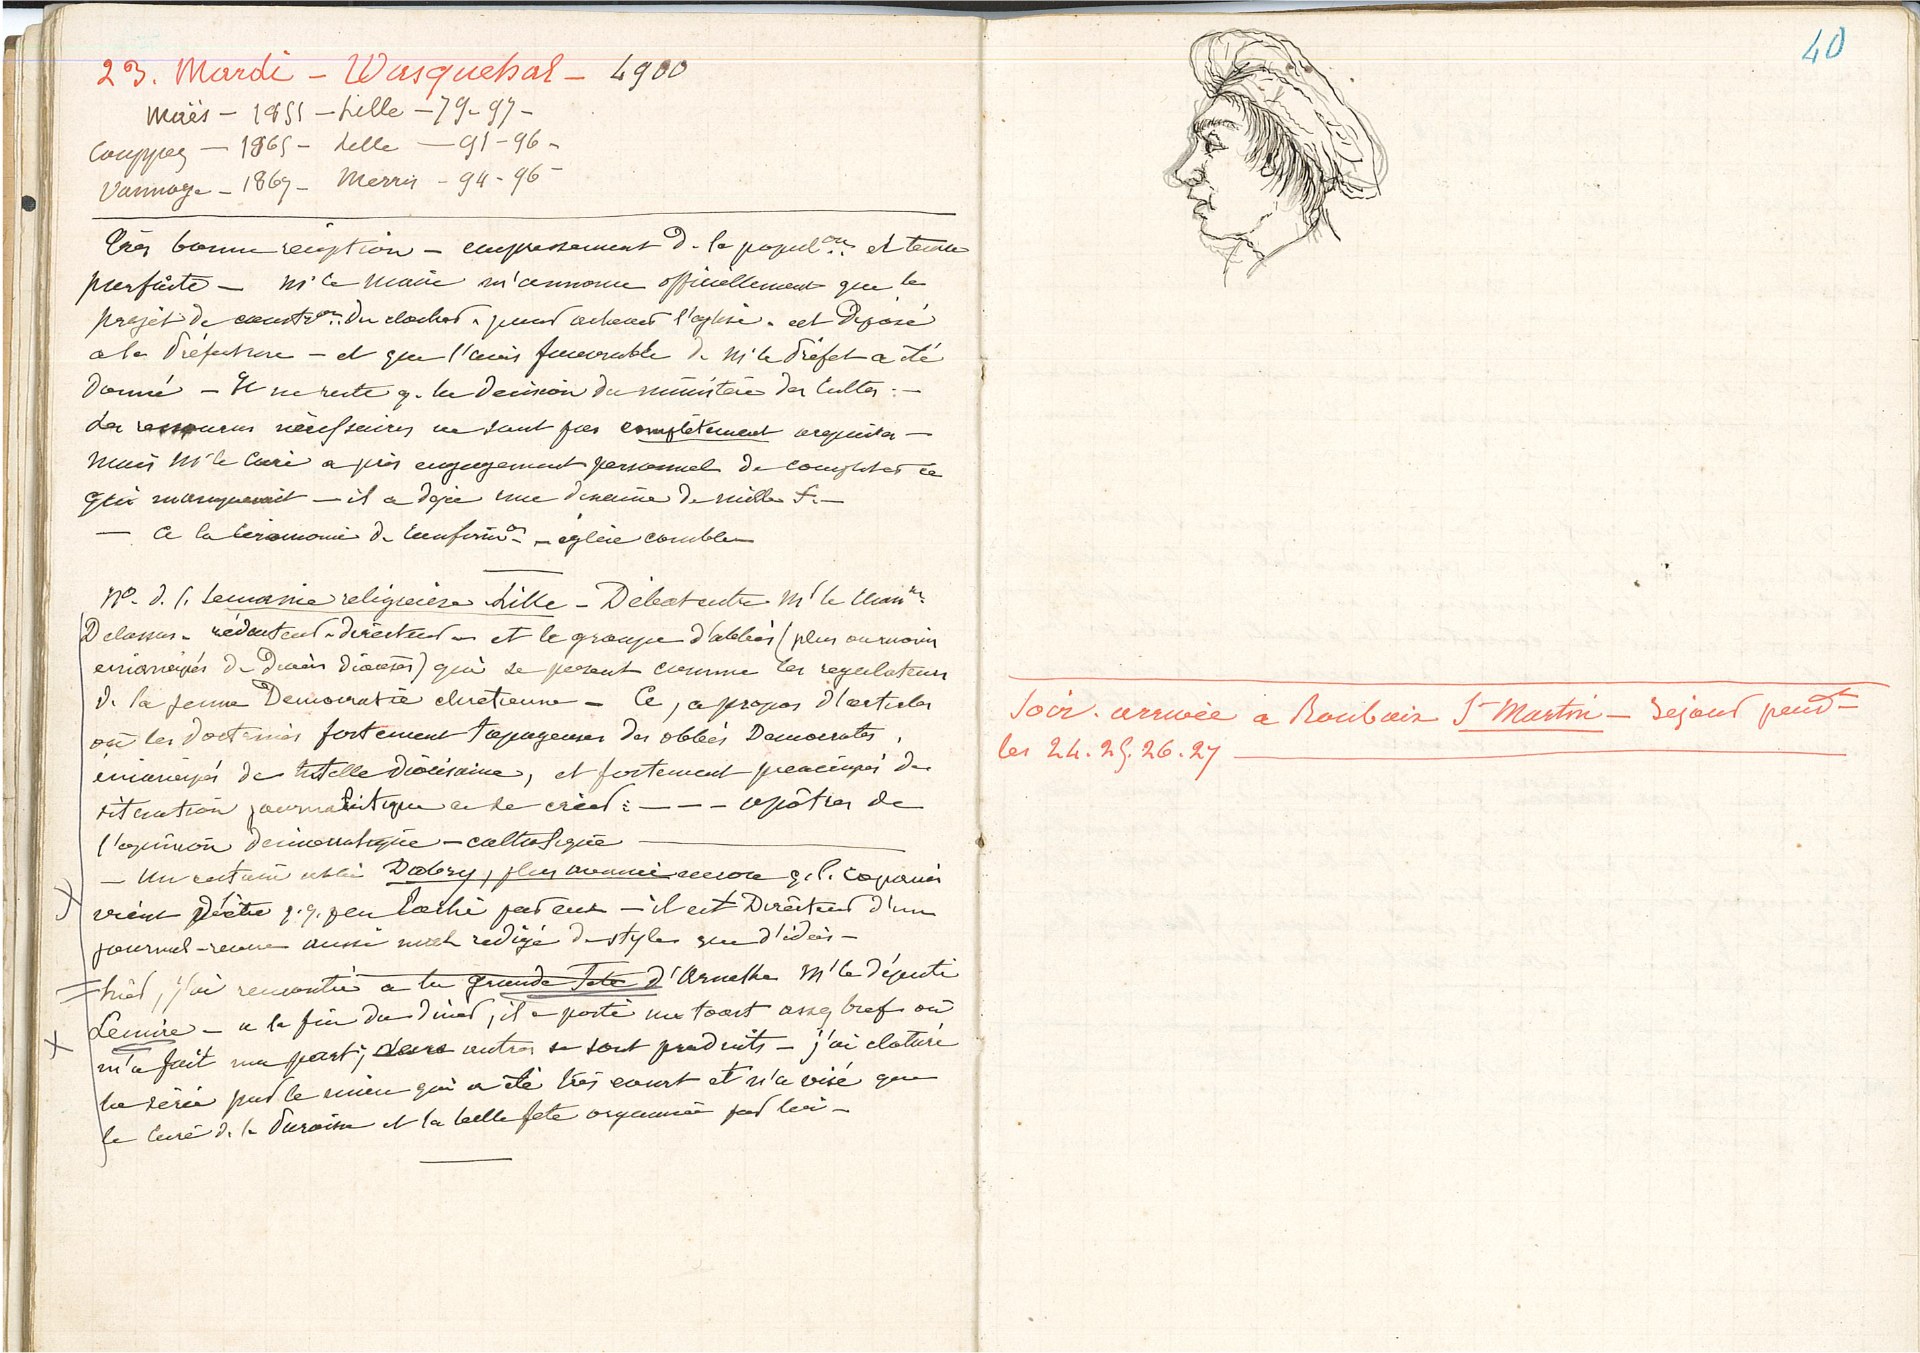 23. Mardi - Wasquehal - 4900
Maës - 1851 - Lille - 79-97-
Couppez - 1865 - Lille - 91-96-
- 1869 - Merris - 94-96-
Très bonne réception - empressement d. la popul.on et tenue
parfaite - Mr le Maire m'annonce officiellement que le
projet de constr.on du clocher, pour achever l'église, est déposé
à la Préfecture - et que l'avis favorable de Mr le Préfet a été
donné - Il ne reste q. la décision du ministère des Cultes. -
Les ressources nécessaires ne sont pas complètement acquises -
mais Mr le Curé a pris engagement personnel de compléter ce
qui manquerait - il a déjà une dizaine de mille f. -
- A la Cérémonie de Confirm.on - église comble -
No. d. l. Semaine religieuse Lille - Débat entre Mr le Chan.ne
Delassus - rédacteur-directeur - et le groupe d'abbés (plus ou moins
émancipés de divers diocèses) qui se posent comme les régulateurs
de la jeune Démocratie chrétienne - Ce, à propos d'articles
où les doctrines fortement tapageuses des abbés Démocrates,
émancipés de tutelle diocésaine, et fortement préoccupés de
situation journalistique à se créer : - - - apôtres de
l'opinion démocratique - catholique
- Un certain abbé Dabry, plus avancé encore q. l. copains
vient d'être q.q. peu lâché par eux - il est Directeur d'un
journal-revue aussi mal rédigé de style que d'idées -
Hier, j'ai rencontré à la grande Fête d'Arnèke Mr le député
Lemire - à la fin du dîner, il a porté un toast assez bref où
m'a fait ma part; autres se sont produits - j'ai clôturé
la série par le mien qui a été très court et n'a visé que
le Curé de la Paroisse et la belle fête organisée par lui -
40
Soir - arrivée à Roubaix St Martin - Séjour pendt
les 24. 25. 26. 27